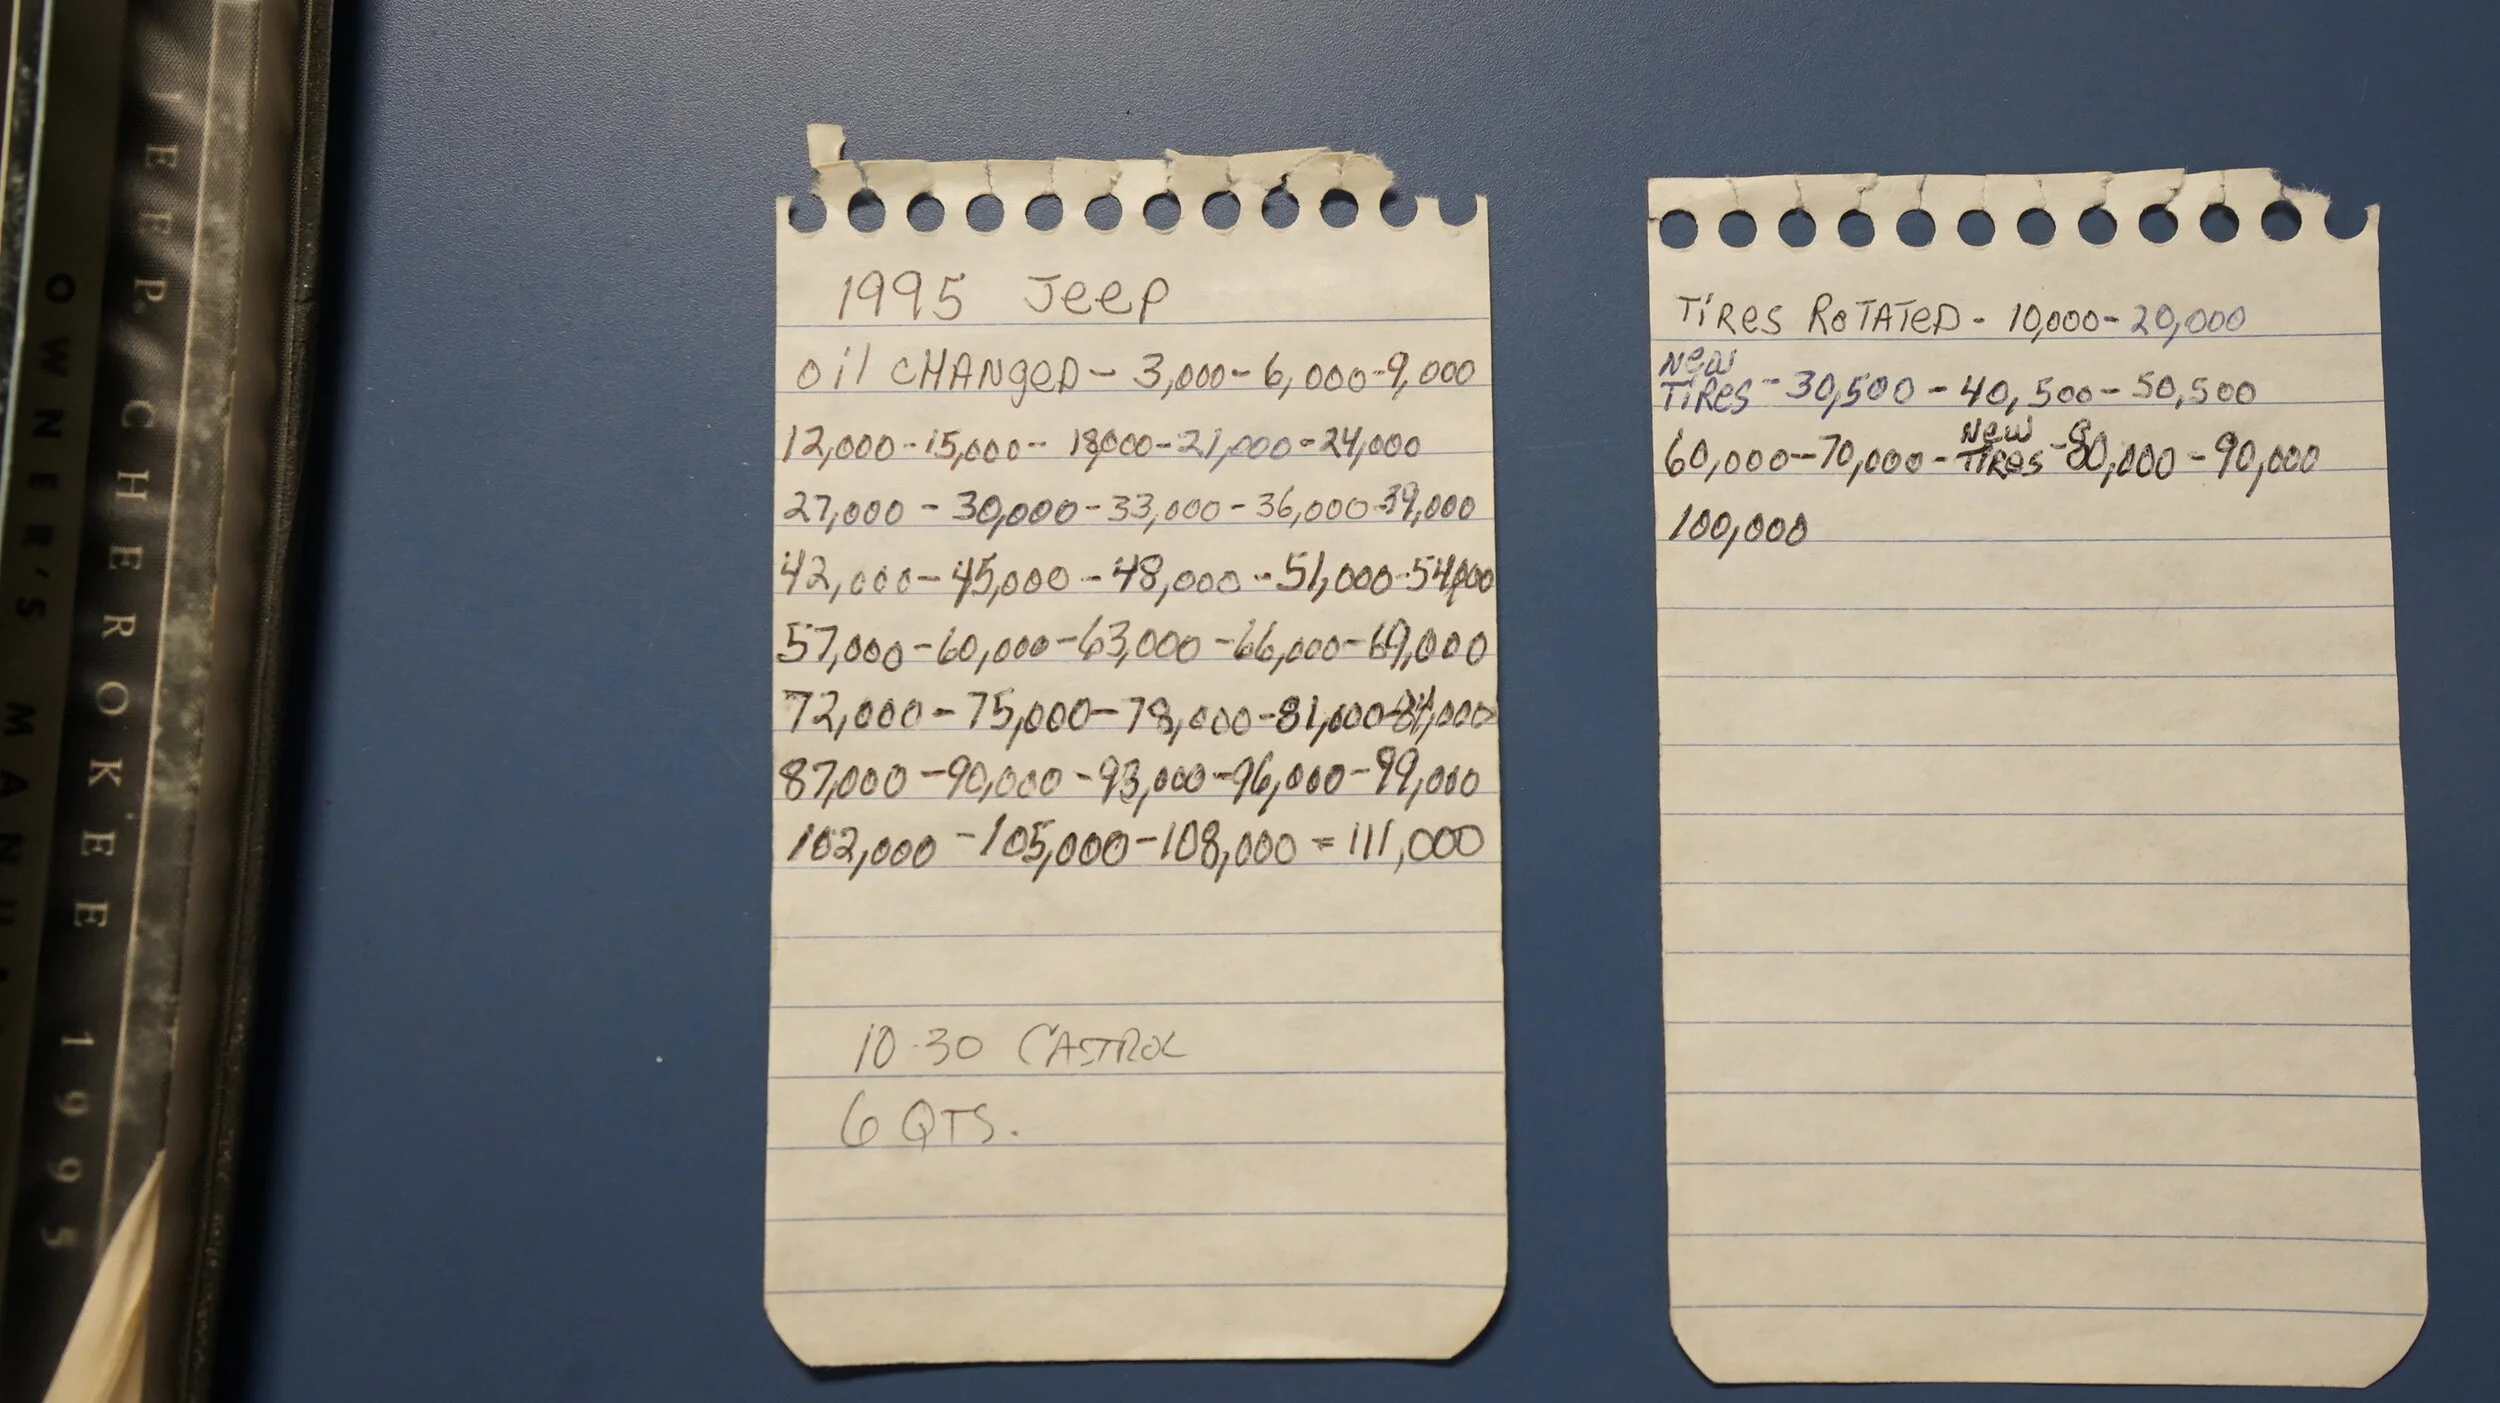 JEEP CHEROKEE 1995
OWNER'S MANUAL
1995 Jeep
oil CHANgeD - 3,000 - 6,000 - 9,000
12,000 - 15,000 - 18,000 - 21,000 - 24,000
27,000 - 30,000 - 33,000 - 36,000 - 39,000
42,000 - 45,000 - 48,000 - 51,000 - 54,000
57,000 - 60,000 - 63,000 - 66,000 - 69,000
72,000 - 75,000 - 78,000 - 81,000 - 84,000
87,000 - 90,000 - 93,000 - 96,000 - 99,000
102,000 - 105,000 - 108,000 = 111,000
10-30 CASTROL
6 QTS.
TiRes RoTATeD - 10,000 - 20,000
New
TiRes - 30,500 - 40,500 - 50,500
New
60,000 - 70,000 - TiRes - 80,000 - 90,000
100,000